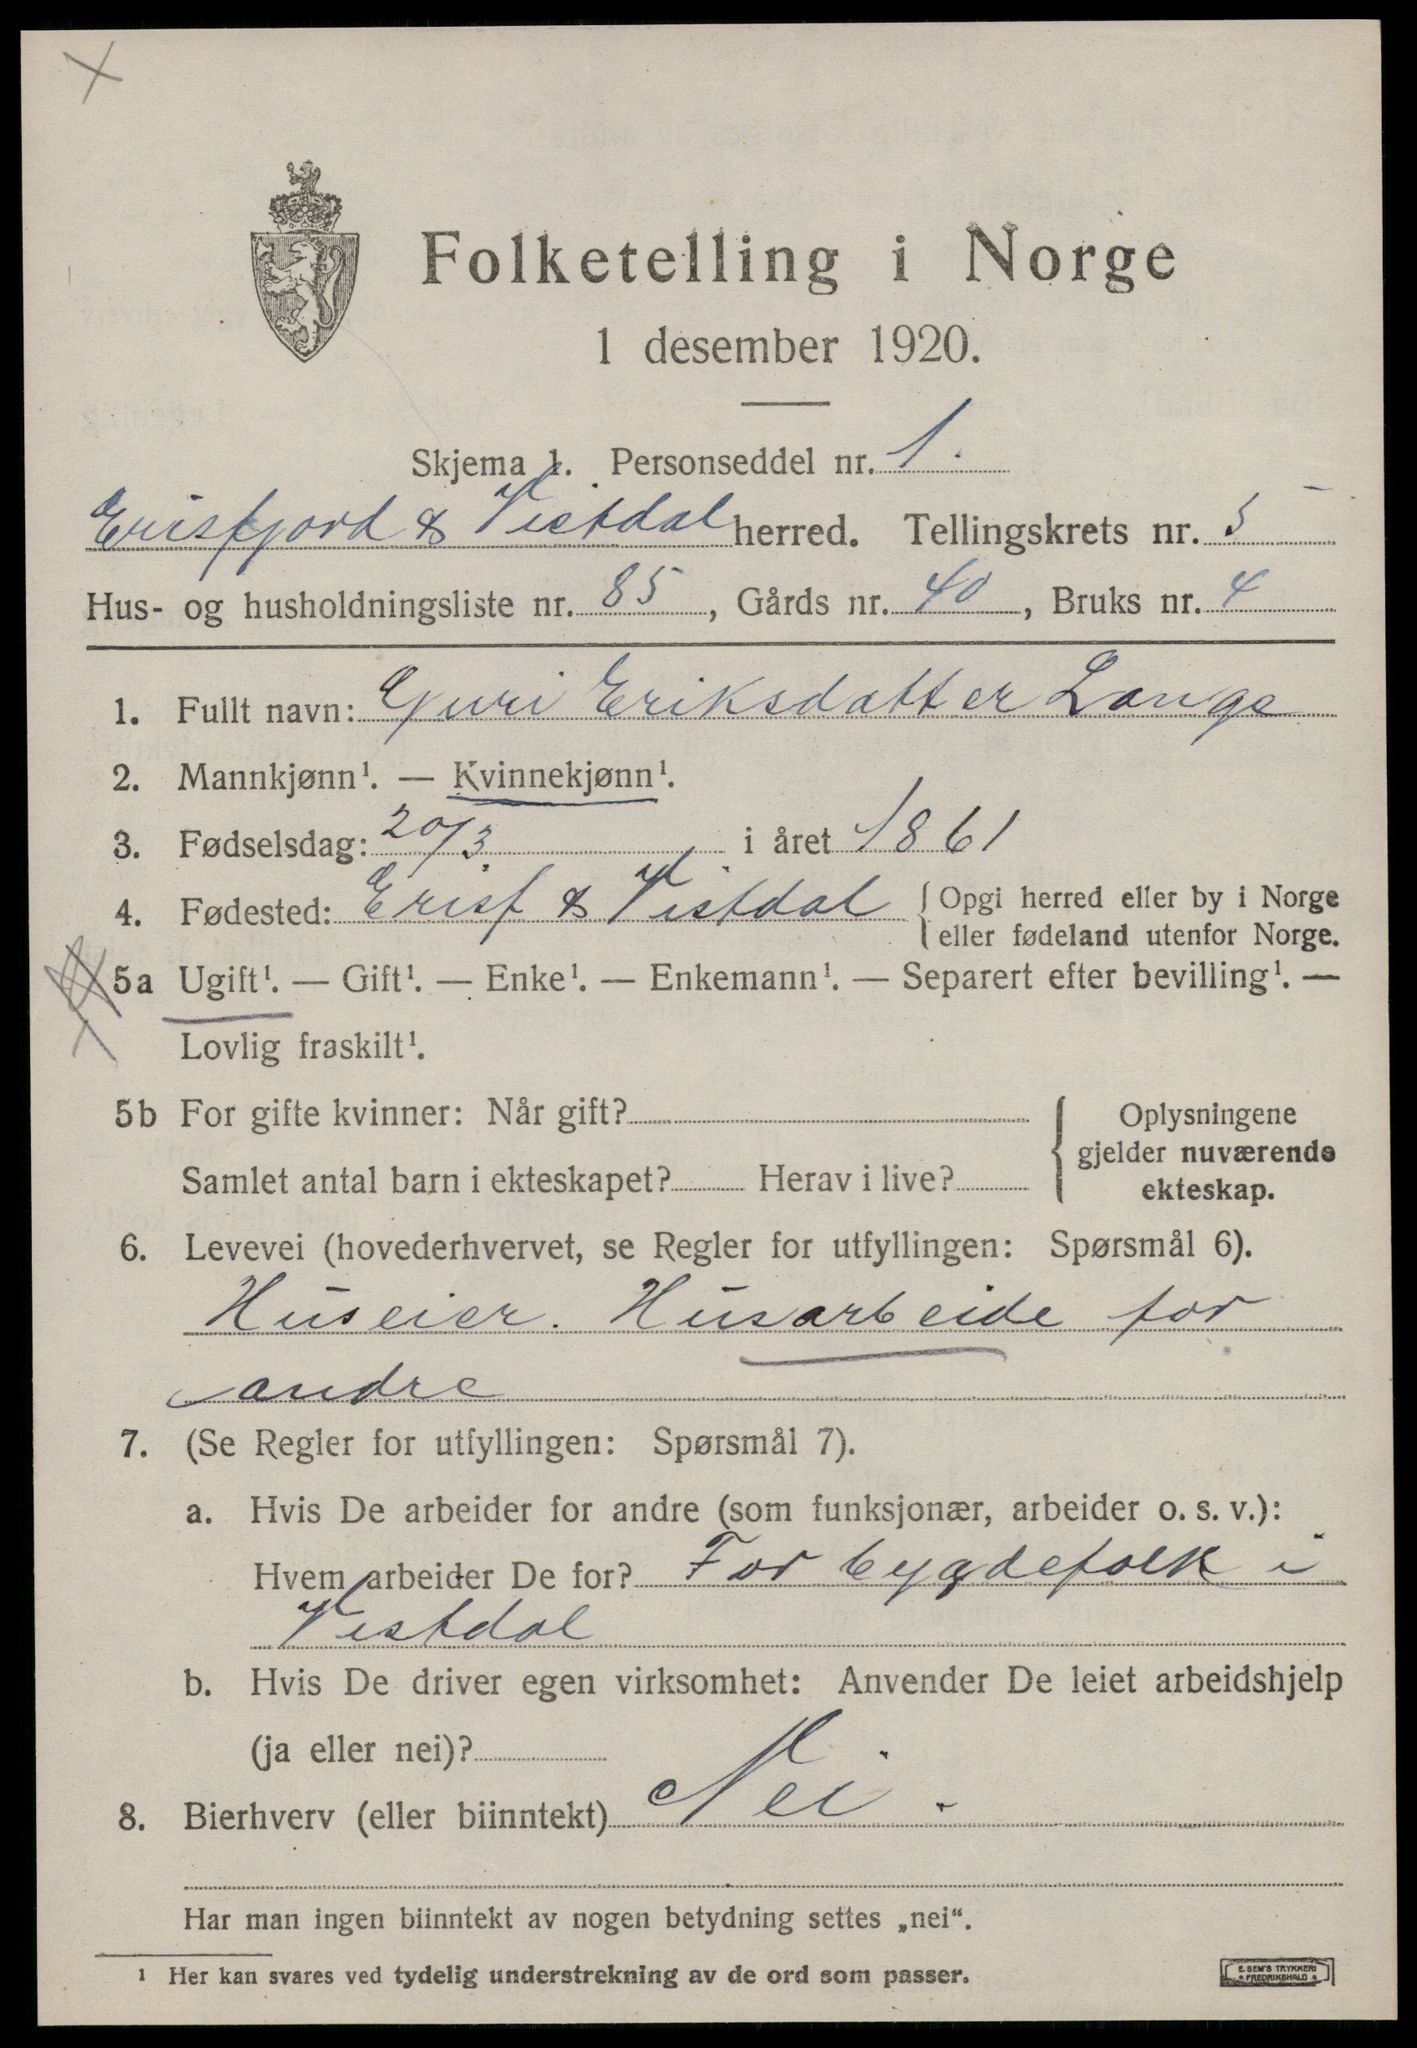 Folketelling i Norge
1 desember 1920.
Skjema 1. Personseddel nr. 1.
Erisfjord & Vistdal herred. Tellingskrets nr. 5
Hus- og husholdningsliste nr. 85, Gårds nr. 40, Bruks nr. 4
1. Fullt navn: Guri Eriksdatter Lange
2. Mannkjønn¹. — Kvinnekjønn¹.
3. Fødselsdag: 20/3 i året 1861
4. Fødested: Erisf & Vistdal { Opgi herred eller by i Norge
eller fødeland utenfor Norge.
5a Ugift¹. — Gift¹. — Enke¹. — Enkemann¹. — Separert efter bevilling¹. —
Lovlig fraskilt¹.
5b For gifte kvinner: Når gift? { Oplysningene
gjelder nuværende
Samlet antal barn i ekteskapet? Herav i live? ekteskap.
6. Levevei (hovederhvervet, se Regler for utfyllingen: Spørsmål 6).
Huseier. Husarbeide for
andre
7. (Se Regler for utfyllingen: Spørsmål 7).
a. Hvis De arbeider for andre (som funksjonær, arbeider o. s. v.):
Hvem arbeider De for? For bygdefolk i
Vistdal
b. Hvis De driver egen virksomhet: Anvender De leiet arbeidshjelp
(ja eller nei)?
8. Bierhverv (eller biinntekt) Nei.
Har man ingen biinntekt av nogen betydning settes „nei".
¹ Her kan svares ved tydelig understrekning av de ord som passer.
E. SEM'S TRYKKERI
FREDRIKSHALD